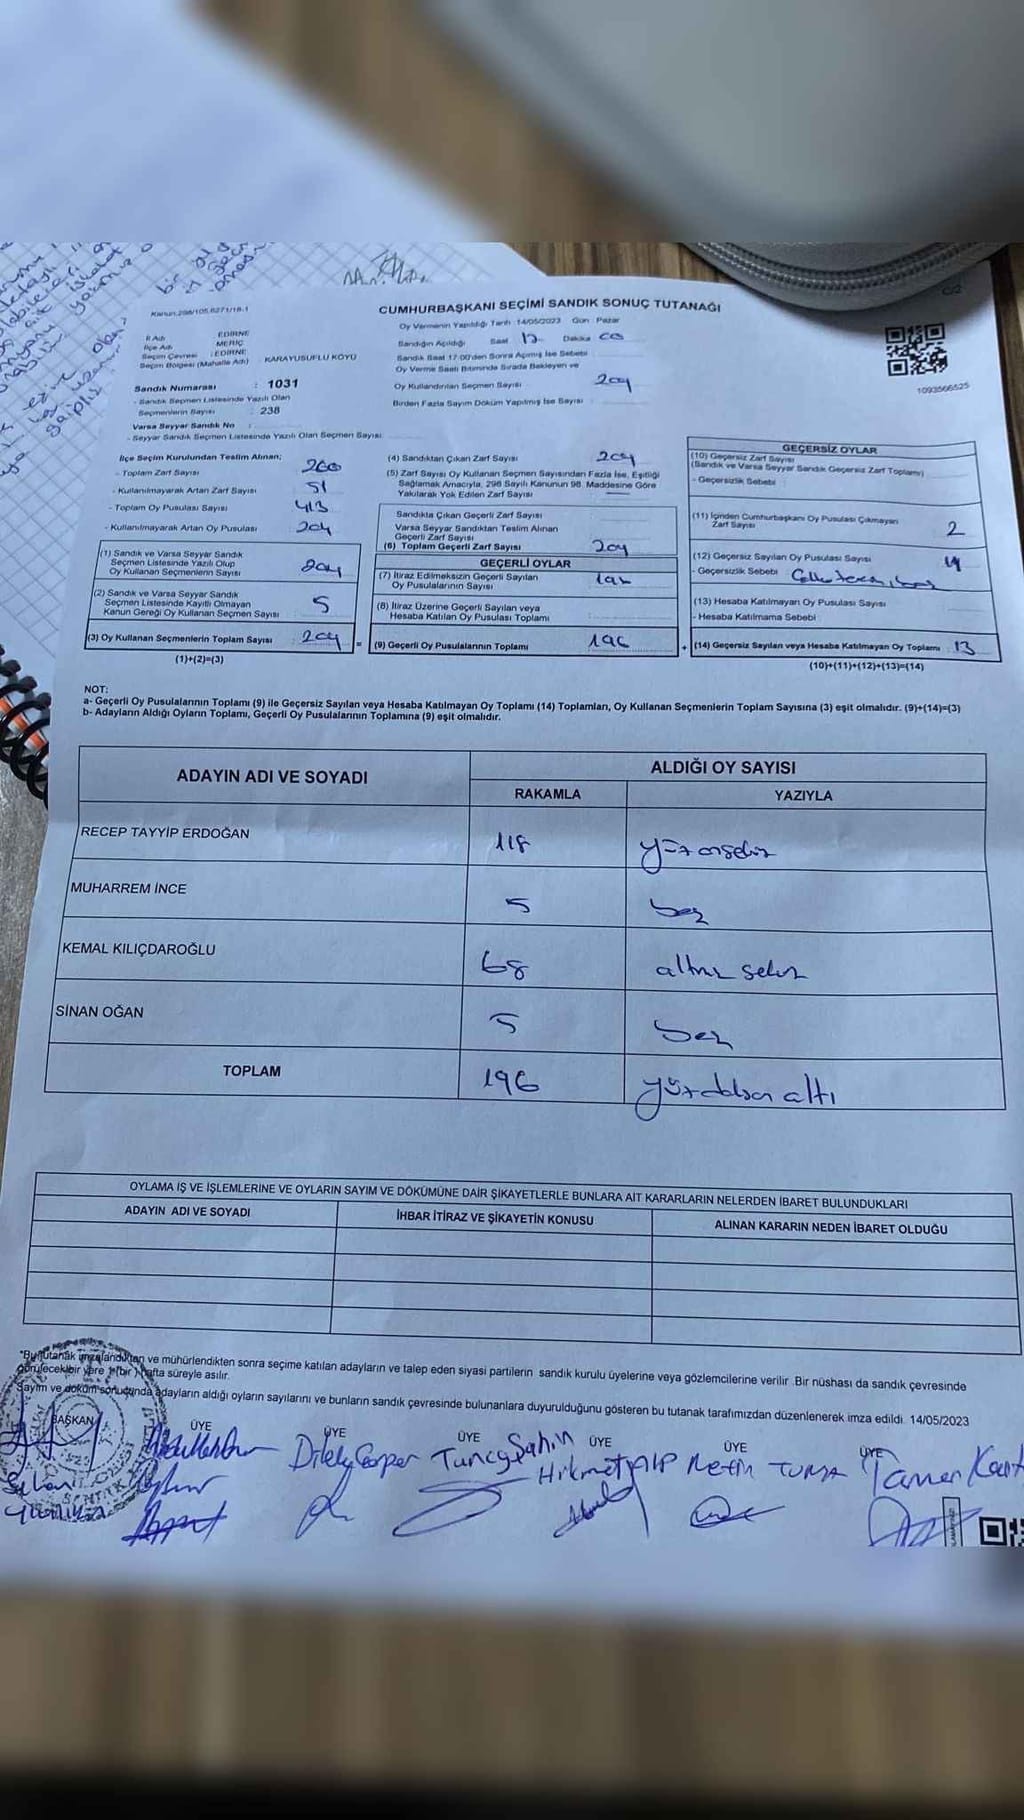 CUMHURBAŞKANI SEÇİMİ SANDIK SONUÇ TUTANAĞI
Kanun:298/105.6271/18-1
Oy Vermenin Yapıldığı Tarih :14/05/2023 Gün : Pazar
İl Adı : EDİRNE
İlçe Adı : MERİÇ
Seçim Çevresi : EDİRNE
Seçim Bölgesi (Mahalle Adı) : KARAYUSUFLU KÖYÜ
Sandık Numarası : 1031
- Sandık Seçmen Listesinde Yazılı Olan
Seçmenlerin Sayısı : 238
Varsa Seyyar Sandık No :
- Seyyar Sandık Seçmen Listesinde Yazılı Olan Seçmen Sayısı:
Sandığın Açıldığı Saat 17 Dakika 00
Sandık Saat 17:00'den Sonra Açmış İse Sebebi
Oy Verme Saati Bitiminde Sırada Bekleyen ve
Oy Kullandırılan Seçmen Sayısı 204
Birden Fazla Sayım Döküm Yapılmış İse Sayısı :
1093566525
İlçe Seçim Kurulundan Teslim Alınan;
- Toplam Zarf Sayısı 260
- Kullanılmayarak Artan Zarf Sayısı 51
- Toplam Oy Pusulası Sayısı 413
- Kullanılmayarak Artan Oy Pusulası 204
(1) Sandık ve Varsa Seyyar Sandık
Seçmen Listesinde Yazılı Olup
Oy Kullanan Seçmenlerin Sayısı 204
(2) Sandık ve Varsa Seyyar Sandık
Seçmen Listesinde Kayıtlı Olmayan
Kanun Gereği Oy Kullanan Seçmen Sayısı 5
(3) Oy Kullanan Seçmenlerin Toplam Sayısı : 204
(1)+(2)=(3)
(4) Sandıktan Çıkan Zarf Sayısı 204
(5) Zarf Sayısı Oy Kullanan Seçmen Sayısından Fazla İse, Eşitliği
Sağlamak Amacıyla, 298 Sayılı Kanunun 98. Maddesine Göre
Yakılarak Yok Edilen Zarf Sayısı
Sandıkta Çıkan Geçerli Zarf Sayısı
Varsa Seyyar Sandıktan Teslim Alınan
Geçerli Zarf Sayısı
(6) Toplam Geçerli Zarf Sayısı 204
GEÇERLİ OYLAR
(7) İtiraz Edilmeksizin Geçerli Sayılan
Oy Pusulalarının Sayısı
(8) İtiraz Üzerine Geçerli Sayılan veya
Hesaba Katılan Oy Pusulası Toplamı
(9) Geçerli Oy Pusulalarının Toplamı 196
GEÇERSİZ OYLAR
(10) Geçersiz Zarf Sayısı
(Sandık ve Varsa Seyyar Sandık Geçersiz Zarf Toplamı)
- Geçersizlik Sebebi :
(11) İçinden Cumhurbaşkanı Oy Pusulası Çıkmayan
Zarf Sayısı 2
(12) Geçersiz Sayılan Oy Pusulası Sayısı
- Geçersizlik Sebebi
(13) Hesaba Katılmayan Oy Pusulası Sayısı
- Hesaba Katılmama Sebebi
+ (14) Geçersiz Sayılan veya Hesaba Katılmayan Oy Toplamı : 13
(10)+(11)+(12)+(13)=(14)
NOT:
a- Geçerli Oy Pusulalarının Toplamı (9) ile Geçersiz Sayılan veya Hesaba Katılmayan Oy Toplamı (14) Toplamları, Oy Kullanan Seçmenlerin Toplam Sayısına (3) eşit olmalıdır. (9)+(14)=(3)
b- Adayların Aldığı Oyların Toplamı, Geçerli Oy Pusulalarının Toplamına (9) eşit olmalıdır.
ADAYIN ADI VE SOYADI ALDIĞI OY SAYISI
RAKAMLA YAZIYLA
RECEP TAYYİP ERDOĞAN 118 yüzonsekiz
MUHARREM İNCE 5 beş
KEMAL KILIÇDAROĞLU 68 altmış sekiz
SİNAN OĞAN 5 beş
TOPLAM 196 yüzdoksan altı
OYLAMA İŞ VE İŞLEMLERİNE VE OYLARIN SAYIM VE DÖKÜMÜNE DAİR ŞİKAYETLERLE BUNLARA AİT KARARLARIN NELERDEN İBARET BULUNDUKLARI
ADAYIN ADI VE SOYADI İHBAR İTİRAZ VE ŞİKAYETİN KONUSU ALINAN KARARIN NEDEN İBARET OLDUĞU
*Bu tutanak imzalandıktan ve mühürlendikten sonra seçime katılan adayların ve talep eden siyasi partilerin sandık kurulu üyelerine veya gözlemcilerine verilir .Bir nüshası da sandık çevresinde
görülecek bir yere 1 (bir ) hafta süreyle asılır.
Sayım ve döküm sonucunda adayların aldığı oyların sayılarını ve bunların sandık çevresinde bulunanlara duyurulduğunu gösteren bu tutanak tarafımızdan düzenlenerek imza edildi. 14/05/2023
BAŞKAN ÜYE ÜYE ÜYE ÜYE ÜYE ÜYE
Tuncay Şahin Hikmet ALP Metin TUNA Tamer Kant